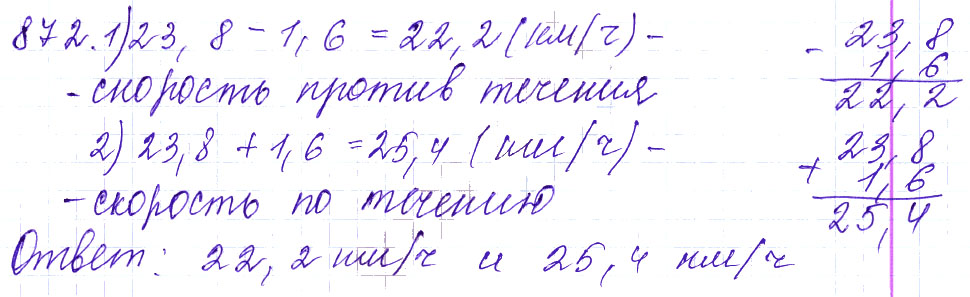 872. 1) 23,8 - 1,6 = 22,2 (км/ч) -
- скорость против течения
2) 23,8 + 1,6 = 25,4 (км/ч) -
- скорость по течению
Ответ: 22,2 км/ч и 25,4 км/ч
- 23,8
1,6
22,2
23,8
+ 1,6
25,4